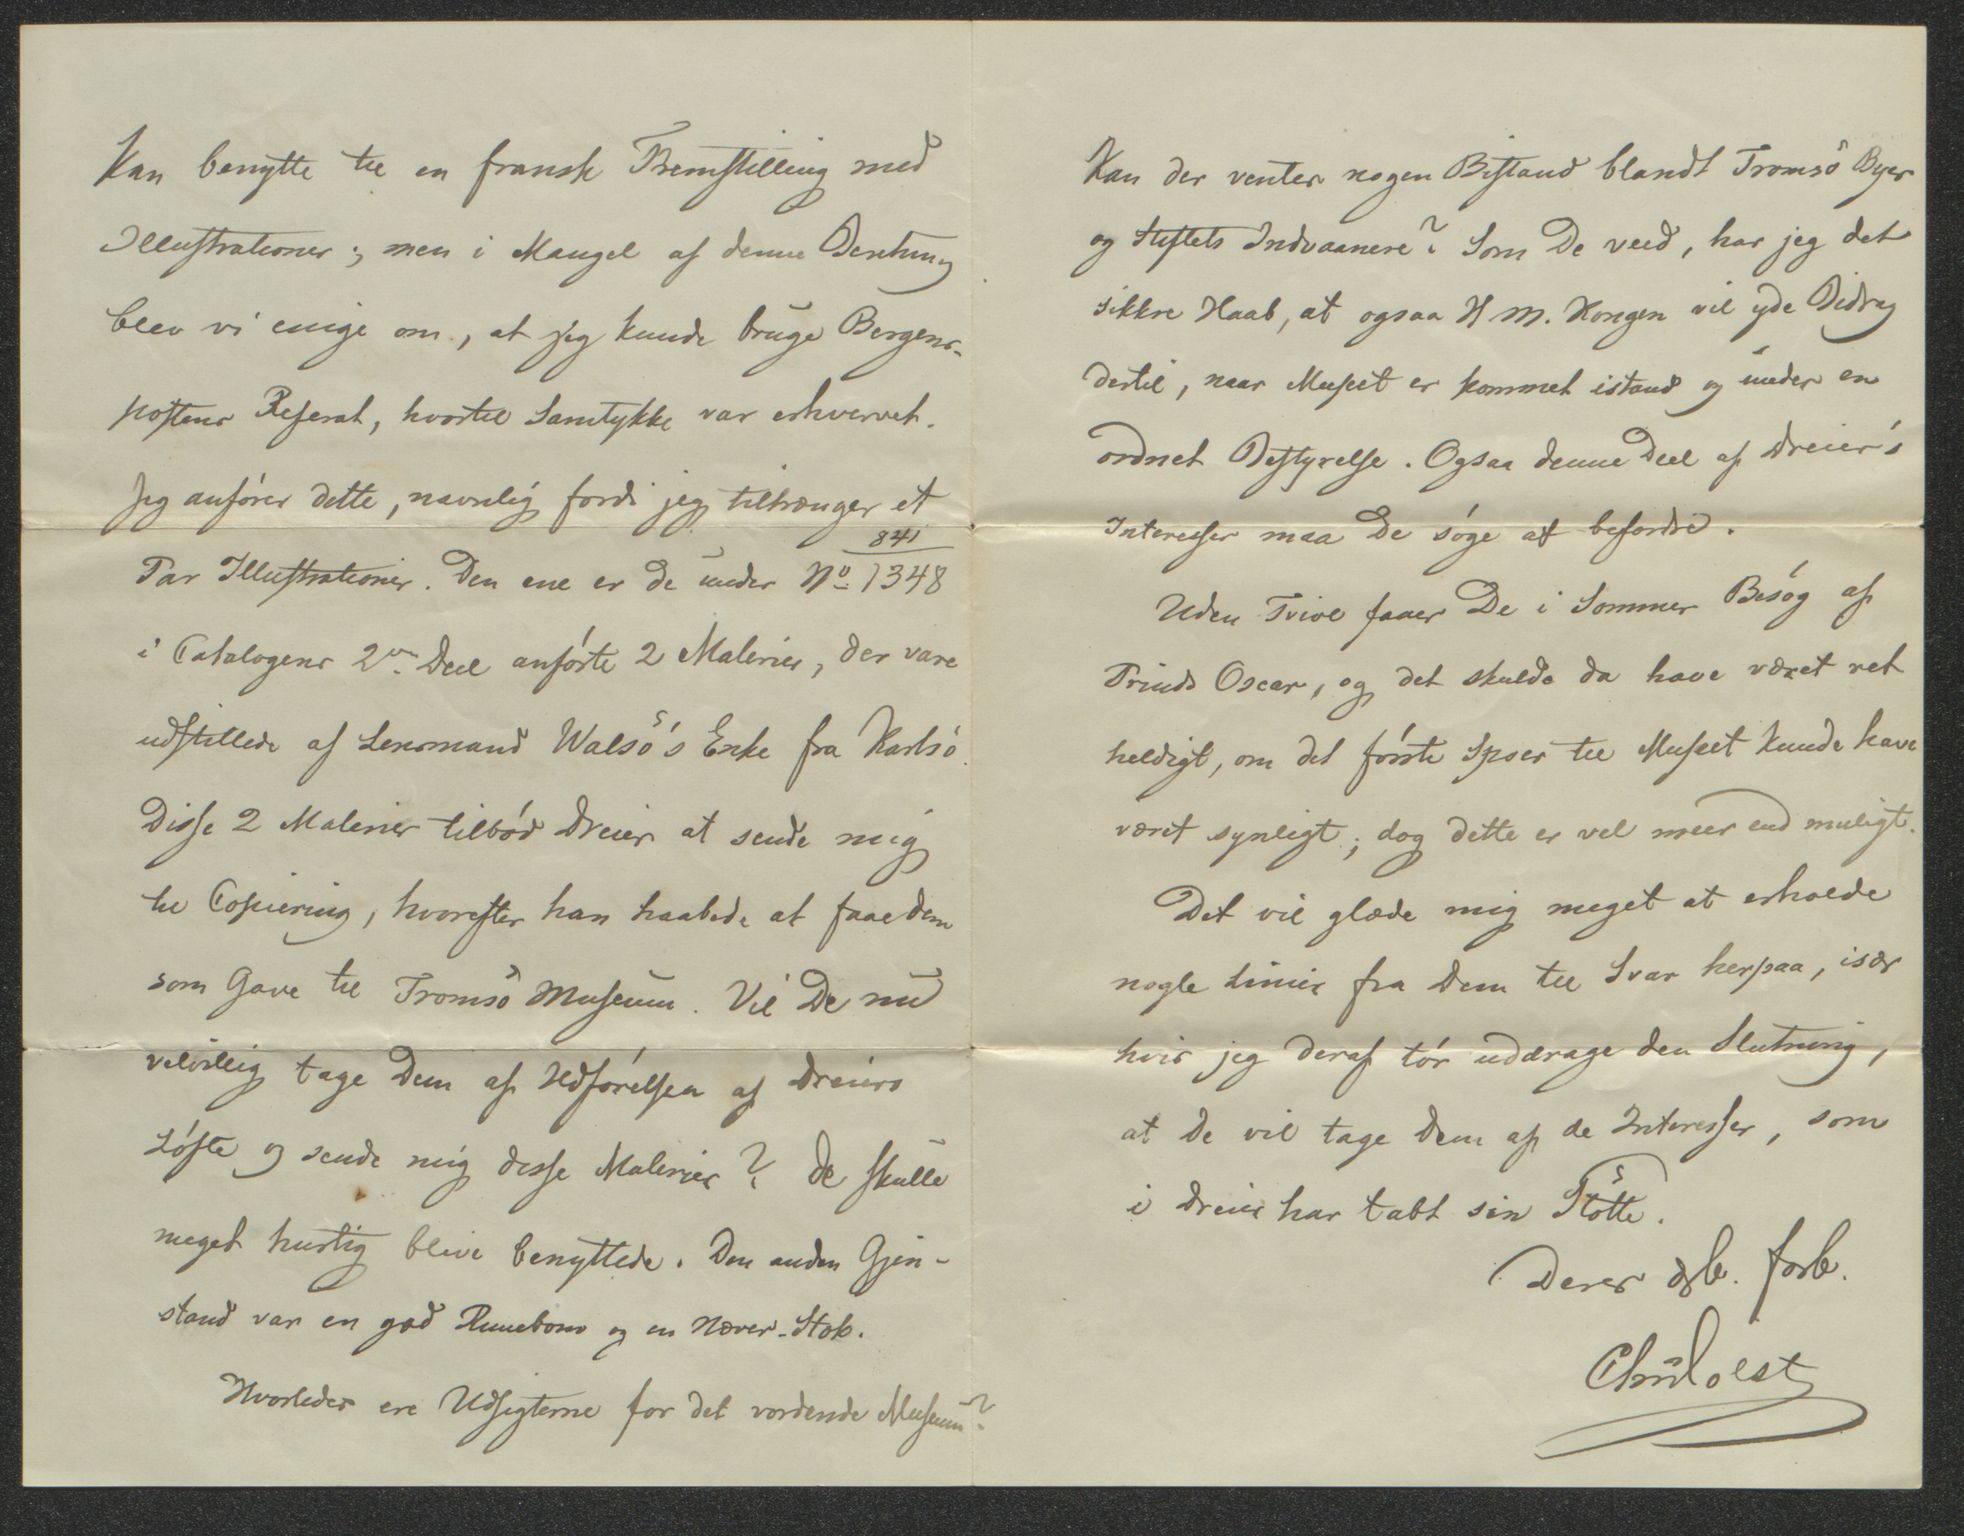 kan benytte til en fransk Fremstilling med
Illustrationer; men i Mangel af denne Beretning
blev vi enige om, at jeg kunde bruge Bergens-
postens Referat, hvortil Samtykke var erhvervet.
Jeg anfører dette, navnlig fordi jeg tiltrænger et
841
Par Illustrationer. Den ene er de under No 1348
i Catalogens 2en Deel anførte 2 Malerier, der vare
udstillede af Lensmand Walsö's Enke fra Karlsö.
Disse 2 Malerier tilbød Dreier at sende mig
til Copiering, hvorefter han haabede at faae dem
som Gave til Tromsö Museum. Vil De nu
velvillig tage Dem af Udførelsen af Dreiers
Løfte og sende mig disse Malerier? De skulle
meget hurtig blive benyttede. Den anden Gjen-
stand var en god Runebom og en Næver-Stok.
Hvorledes ere Udsigterne for det vordende Museum?
Kan der ventes nogen Bistand blandt Tromsö Byes
og Stiftets Indvaanere? Som De veed, har jeg det
sikkre Haab, at ogsaa H M. Kongen vil yde Bidrag
dertil, naar Museet er kommet istand og under en
ordnet Bestyrelse. Ogsaa denne Deel af Dreier's
Interesser maa De søge at befordre.
Uden Tvivl faaer De i Sommer Besøg af
Prinds Oscar, og det skulde da have været ret
heldigt, om det første Spoer til Museet kunde have
været synligt; dog dette er vel meer end muligt.
Det vil glæde mig meget at erholde
nogle Linier fra Dem til Svar herpaa, især
hvis jeg deraf tør uddrage den Slutning,
at De vil tage Dem af de Interesser, som
i Dreier har tabt sin Støtte.
Deres ærb. forb.
Chr Holst